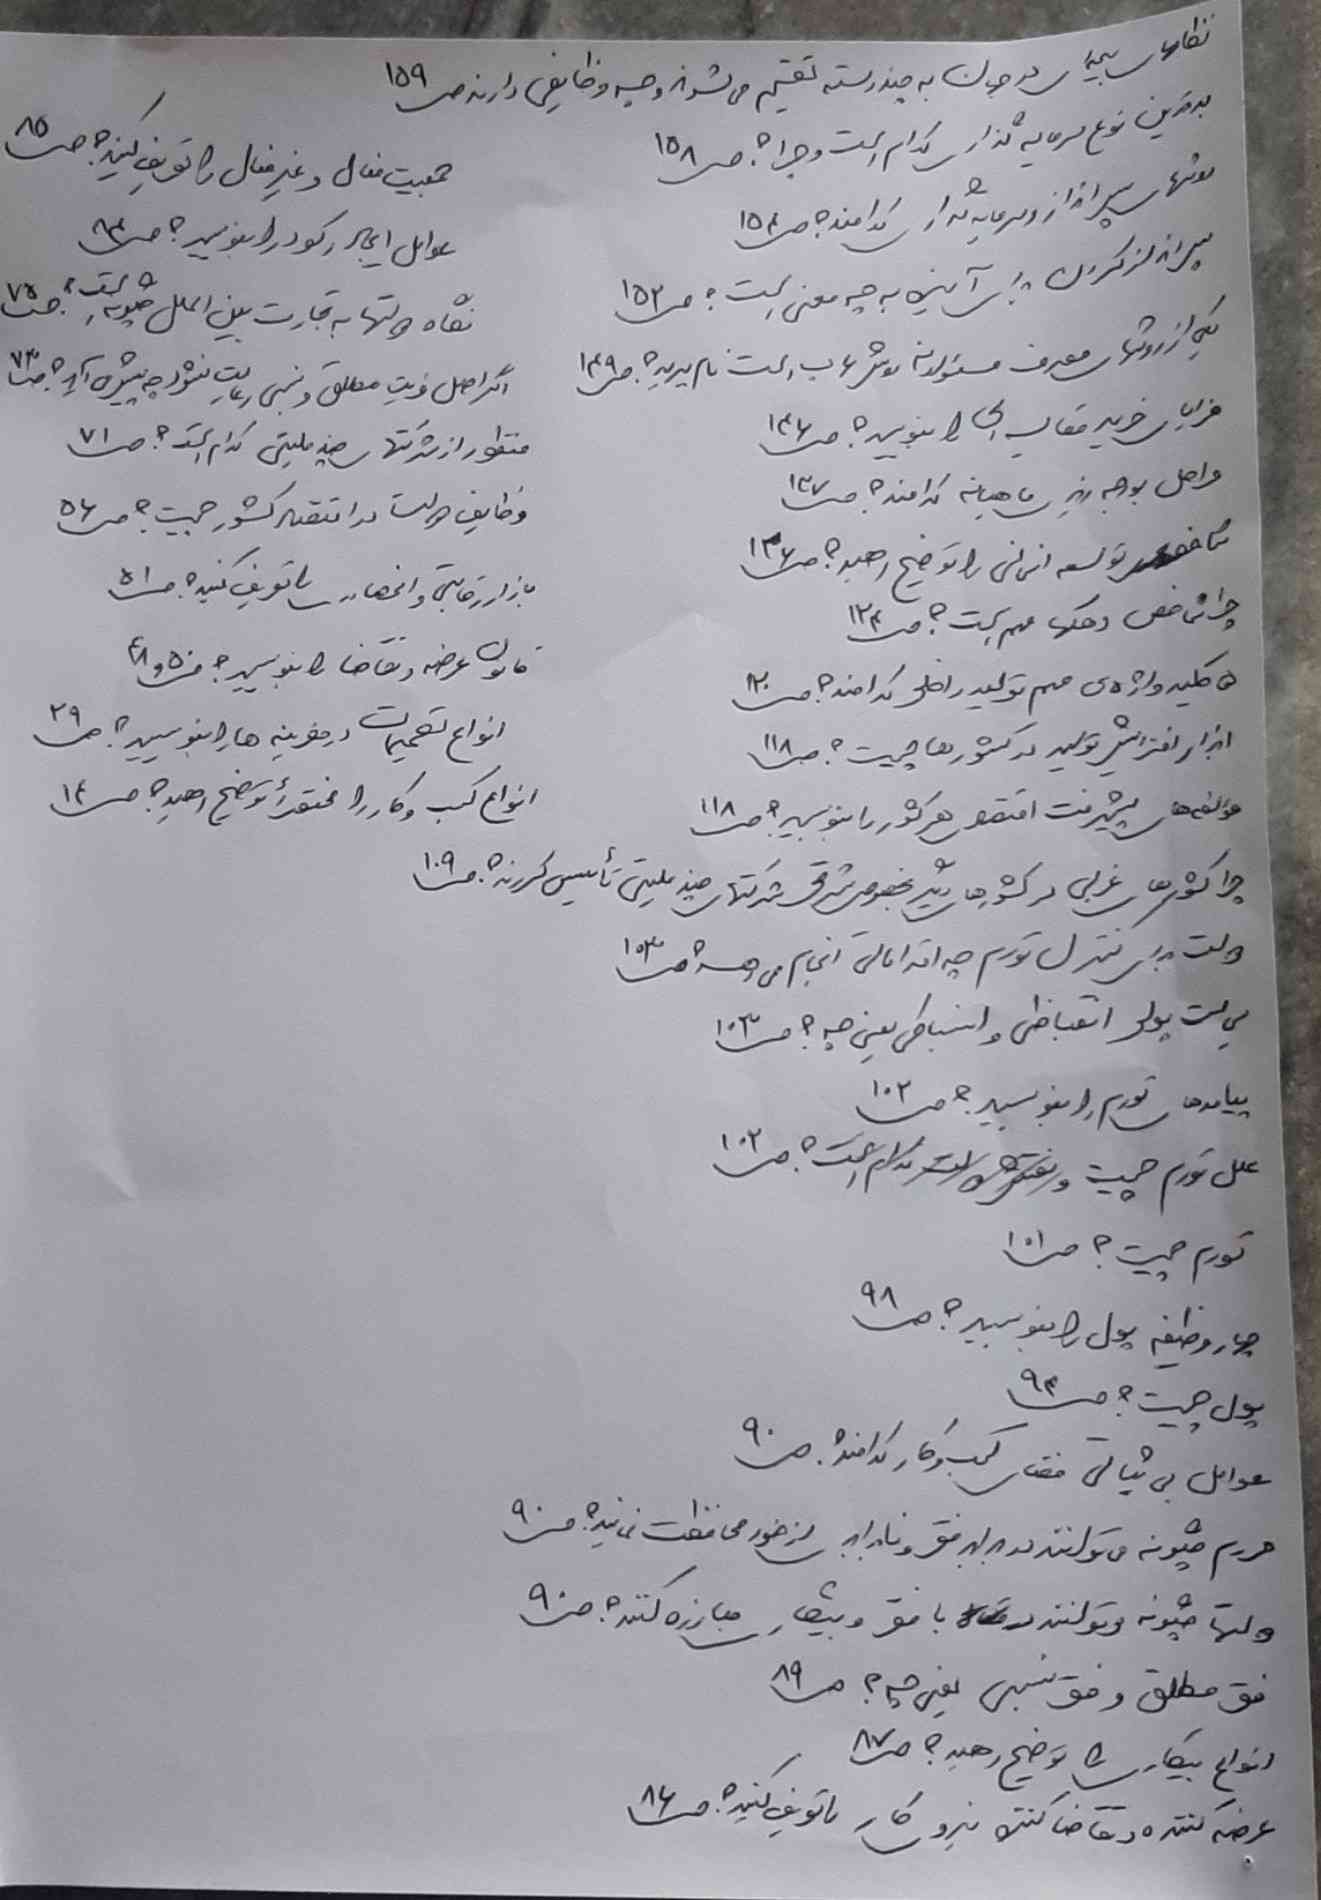 نظامهای بیمه‌ای در جهان به چند دسته تقسیم می‌شوند و چه وظایفی دارند ص ۱۵۹
بهترین نوع سرمایه گذاری کدام است و چرا؟ ص ۱۵۸
روشهای پس انداز و سرمایه گذاری کدامند؟ ص ۱۵۴
پس انداز کردن برای آینده به چه معنی است؟ ص ۱۵۲
یکی از روشهای مصرف مسئولانه روش است نام ببرید؟ ص ۱۴۹
مزایای خرید مقایسه ای را بنویسید؟ ص ۱۴۶
مراحل بودجه ریزی ماهیانه کدامند؟ ص ۱۳۷
شاخص توسعه انسانی را توضیح دهید؟ ص ۱۳۶
چرا شاخص دهکها مهم است؟ ص ۱۲۴
کلید واژه‌ی مهم تولید داخلی کدامند؟ ص ۱۲۰
ابزار افزایش تولید در کشورها چیست؟ ص ۱۱۸
مولفه‌های پیشرفت اقتصادی هر کشور را بنویسید؟ ص ۱۱۸
چرا کشورهای غربی در کشورهای دیگر بخصوص شرقی شرکتهای چند ملیتی تأسیس کردند؟ ص ۱۰۹
دولت برای کنترل تورم چه اقداماتی انجام می دهد؟ ص ۱۰۳
سیاست پولی انقباضی و انبساطی یعنی چه؟ ص ۱۰۳
پیامدهای تورم را بنویسید؟ ص ۱۰۲
علل تورم چیست ص ۱۰۲
تورم چیست؟ ص ۱۰۱
چهار وظیفه پول را بنویسید؟ ص ۹۸
پول چیست؟ ص ۹۴
عوامل بی ثباتی فضای کسب و کار کدامند؟ ص ۹۰
مردم چگونه می توانند در برابر فقر و نابرابری از خود محافظت نمایند؟ ص ۹۰
دولتها چگونه می توانند با فقر و بیکاری مبارزه کنند؟ ص ۹۰
فقر مطلق و فقر نسبی یعنی چه؟ ص ۸۹
انواع بیکاری را توضیح دهید؟ ص ۸۷
عرضه کننده و تقاضا کننده نیروی کار را تعریف کنید؟ ص ۸۶
جمعیت فعال و غیر فعال را تعریف کنید؟ ص ۸۵
عوامل ایجاد رکود را بنویسید؟ ص ۸۴
نگاه دولتها به تجارت بین الملل چگونه است؟ ص ۷۵
اگر اصل مزیت مطلق و نسبی رعایت نشود چه پیش می آید؟ ص ۷۳
منظور از شرکتهای چند ملیتی کدام است؟ ص ۷۱
وظایف دولت در اقتصاد کشور چیست؟ ص ۵۶
بازار رقابتی و انحصاری را تعریف کنید؟ ص ۵۱
قانون عرضه و تقاضا را بنویسید؟ ص ۵۰ و ۴۸
انواع تصمیمات در هزینه ها را بنویسید؟ ص ۲۹
انواع کسب و کار را مختصرأ توضیح دهید؟ ص ۱۴